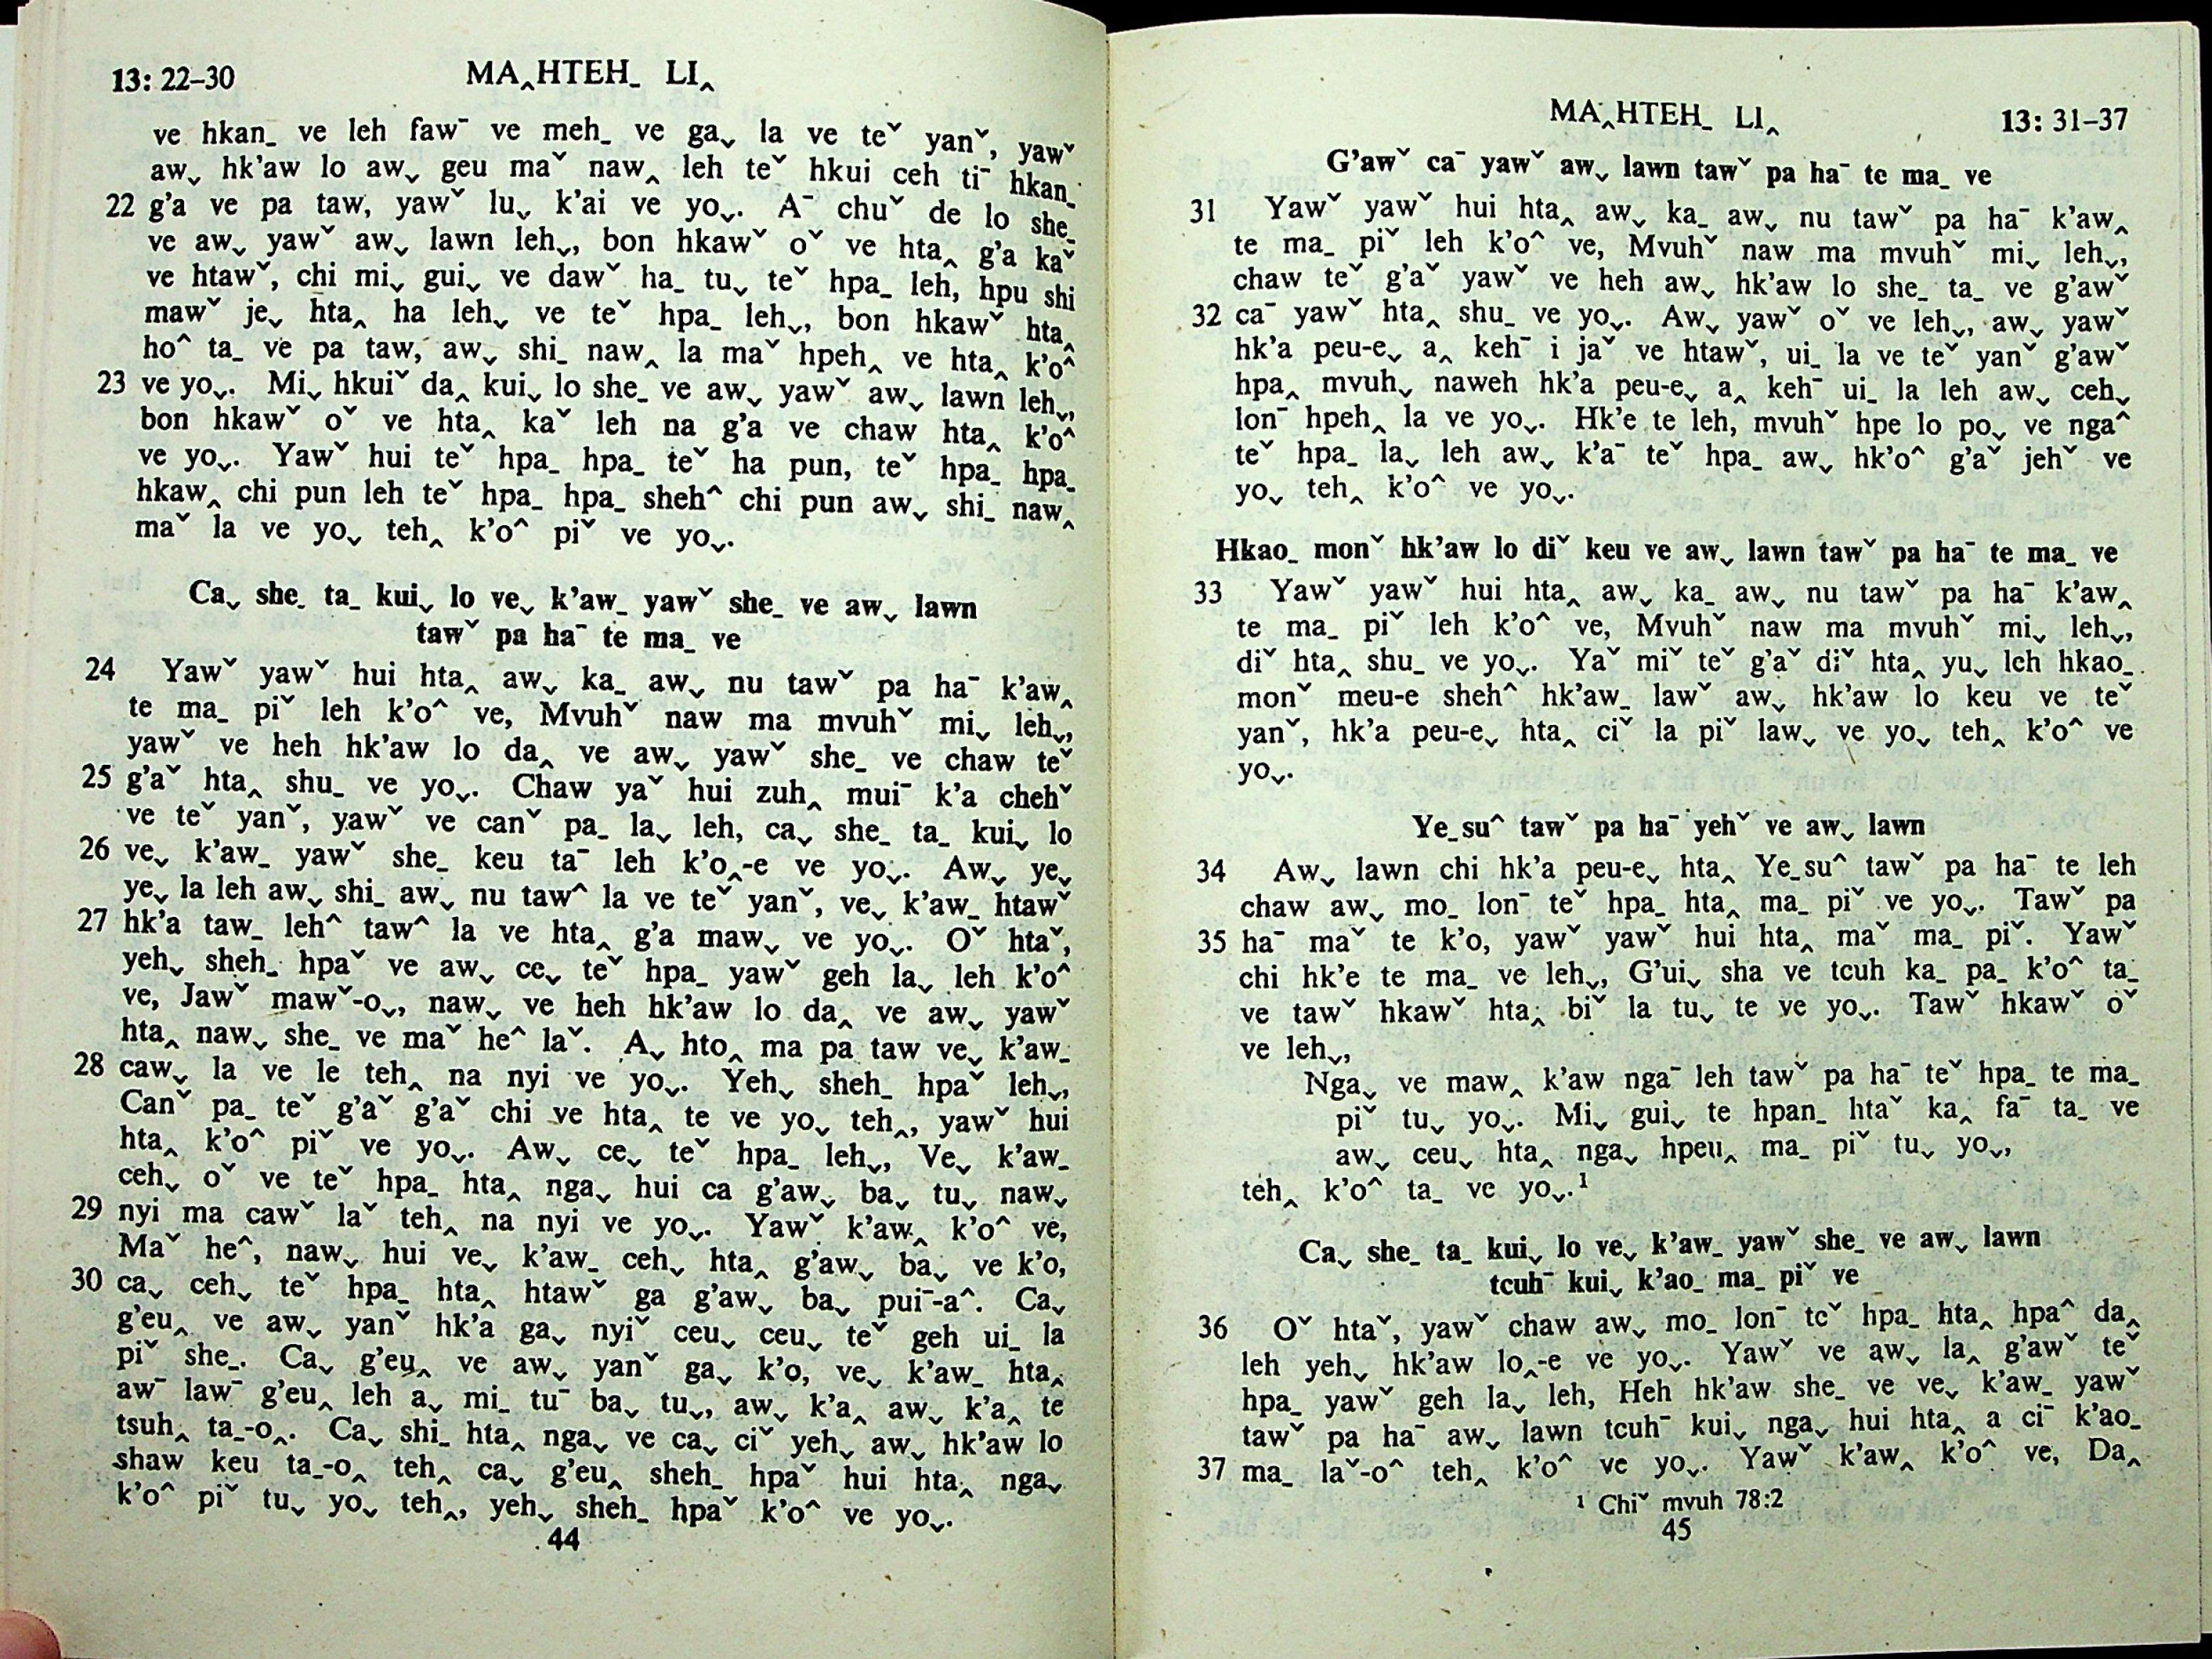 13: 22–30 MA‸HTEH_ LI‸
ve hkan_ ve leh fawˉ ve meh_ ve ga⌄ la ve teˇ yanˇ, yawˇ
aw⌄ hk'aw lo aw⌄ geu maˇ naw‸ leh teˇ hkui ceh tiˉ hkan_
22 g'a ve pa taw, yawˇ lu⌄ k'ai ve yo⌄. Aˉ chuˇ de lo she_
ve aw⌄ yawˇ aw⌄ lawn leh⌄, bon hkawˇ oˇ ve hta‸ g'a kaˇ
ve htawˇ, chi mi⌄ gui⌄ ve dawˇ ha_ tu⌄ teˇ hpa_ leh, hpu shi
mawˇ je⌄ hta‸ ha leh⌄ ve teˇ hpa_ leh⌄, bon hkawˇ hta‸
ho^ ta_ ve pa taw, aw⌄ shi_ naw‸ la maˇ hpeh‸ ve hta‸ k'o^
23 ve yo⌄. Mi⌄ hkuiˇ da‸ kui⌄ lo she_ ve aw⌄ yawˇ aw⌄ lawn leh⌄,
bon hkawˇ oˇ ve hta‸ kaˇ leh na g'a ve chaw hta‸ k'o^
ve yo⌄. Yawˇ hui teˇ hpa_ hpa_ teˇ ha pun, teˇ hpa_ hpa_
hkaw‸ chi pun leh teˇ hpa_ hpa_ sheh^ chi pun aw⌄ shi_ naw‸
maˇ la ve yo⌄ teh‸ k'o^ piˇ ve yo⌄.
Ca⌄ she_ ta_ kui⌄ lo ve⌄ k'aw_ yawˇ she_ ve aw⌄ lawn
tawˇ pa haˉ te ma_ ve
24 Yawˇ yawˇ hui hta‸ aw⌄ ka_ aw⌄ nu tawˇ pa haˉ k'aw‸
te ma_ piˇ leh k'o^ ve, Mvuhˇ naw ma mvuhˇ mi⌄ leh⌄,
yawˇ ve heh hk'aw lo da‸ ve aw⌄ yawˇ she_ ve chaw teˇ
25 g'aˇ hta‸ shu_ ve yo⌄. Chaw yaˇ hui zuh‸ muiˉ k'a chehˇ
ve teˇ yanˇ, yawˇ ve canˇ pa_ la⌄ leh, ca⌄ she_ ta_ kui⌄ lo
26 ve⌄ k'aw_ yawˇ she_ keu taˉ leh k'o‸-e ve yo⌄. Aw⌄ ye⌄
ye⌄ la leh aw⌄ shi_ aw⌄ nu taw^ la ve teˇ yanˇ, ve⌄ k'aw_ htawˇ
27 hk'a taw_ leh^ taw^ la ve hta‸ g'a maw⌄ ve yo⌄. Oˇ htaˇ,
yeh⌄ sheh_ hpaˇ ve aw⌄ ce⌄ teˇ hpa_ yawˇ geh la⌄ leh k'o^
ve, Jawˇ mawˇ-o⌄, naw⌄ ve heh hk'aw lo da‸ ve aw⌄ yawˇ
hta‸ naw⌄ she_ ve maˇ he^ laˇ. A⌄ hto‸ ma pa taw ve⌄ k'aw_
28 caw⌄ la ve le teh‸ na nyi ve yo⌄. Yeh⌄ sheh_ hpaˇ leh⌄,
Canˇ pa_ teˇ g'aˇ g'aˇ chi ve hta‸ te ve yo⌄ teh‸, yawˇ hui
hta‸ k'o^ piˇ ve yo⌄. Aw⌄ ce⌄ teˇ hpa_ leh⌄, Ve⌄ k'aw_
ceh⌄ oˇ ve teˇ hpa_ hta‸ nga⌄ hui ca g'aw⌄ ba⌄ tu⌄ naw⌄
29 nyi ma cawˇ laˇ teh‸ na nyi ve yo⌄. Yawˇ k'aw‸ k'o^ ve,
Maˇ he^, naw⌄ hui ve⌄ k'aw_ ceh⌄ hta‸ g'aw⌄ ba⌄ ve k'o,
30 ca⌄ ceh⌄ teˇ hpa_ hta‸ htawˇ ga g'aw⌄ ba⌄ puiˉ-a^. Ca⌄
g'eu‸ ve aw⌄ yanˇ hk'a ga⌄ nyiˇ ceu⌄ ceu⌄ teˇ geh ui_ la
piˇ she_. Ca⌄ g'eu‸ ve aw⌄ yanˇ ga⌄ k'o, ve⌄ k'aw_ hta‸
awˉ lawˉ g'eu‸ leh a⌄ mi_ tuˉ ba⌄ tu⌄, aw⌄ k'a‸ aw⌄ k'a‸ te
tsuh‸ ta_-o‸. Ca⌄ shi_ hta‸ nga⌄ ve ca⌄ ciˇ yeh⌄ aw⌄ hk'aw lo
shaw keu ta_-o‸ teh‸ ca⌄ g'eu‸ sheh_ hpaˇ hui hta‸ nga⌄
k'o^ piˇ tu⌄ yo⌄ teh‸, yeh⌄ sheh_ hpaˇ k'o^ ve yo⌄.
44
MA‸HTEH_ LI‸ 13: 31–37
G'awˇ caˉ yawˇ aw⌄ lawn tawˇ pa haˉ te ma_ ve
31 Yawˇ yawˇ hui hta‸ aw⌄ ka_ aw⌄ nu tawˇ pa haˉ k'aw‸
te ma_ piˇ leh k'o^ ve, Mvuhˇ naw ma mvuhˇ mi⌄ leh⌄,
chaw teˇ g'aˇ yawˇ ve heh aw⌄ hk'aw lo she_ ta_ ve g'awˇ
32 caˉ yawˇ hta‸ shu_ ve yo⌄. Aw⌄ yawˇ oˇ ve leh⌄, aw⌄ yawˇ
hk'a peu-e⌄ a‸ kehˉ i jaˇ ve htawˇ, ui_ la ve teˇ yanˇ g'awˇ
hpa‸ mvuh⌄ naweh hk'a peu-e⌄ a‸ kehˉ ui_ la leh aw⌄ ceh⌄
lonˉ hpeh‸ la ve yo⌄. Hk'e te leh, mvuhˇ hpe lo po⌄ ve nga^
teˇ hpa_ la⌄ leh aw⌄ k'aˉ teˇ hpa_ aw⌄ hk'o^ g'aˇ jehˇ ve
yo⌄ teh‸ k'o^ ve yo⌄.
Hkao_ monˇ hk'aw lo diˇ keu ve aw⌄ lawn tawˇ pa haˉ te ma_ ve
33 Yawˇ yawˇ hui hta‸ aw⌄ ka_ aw⌄ nu tawˇ pa haˉ k'aw‸
te ma_ piˇ leh k'o^ ve, Mvuhˇ naw ma mvuhˇ mi⌄ leh⌄,
diˇ hta‸ shu_ ve yo⌄. Yaˇ miˇ teˇ g'aˇ diˇ hta‸ yu⌄ leh hkao_
monˇ meu-e sheh^ hk'aw_ lawˇ aw⌄ hk'aw lo keu ve teˇ
yanˇ, hk'a peu-e⌄ hta‸ ciˇ la piˇ law⌄ ve yo⌄ teh‸ k'o^ ve
yo⌄.
Ye_su^ tawˇ pa haˉ yehˇ ve aw⌄ lawn
34 Aw⌄ lawn chi hk'a peu-e⌄ hta‸ Ye_su^ tawˇ pa haˉ te leh
chaw aw⌄ mo_ lonˉ teˇ hpa_ hta‸ ma_ piˇ ve yo⌄. Tawˇ pa
35 haˉ maˇ te k'o, yawˇ yawˇ hui hta‸ maˇ ma_ piˇ. Yawˇ
chi hk'e te ma_ ve leh⌄, G'ui⌄ sha ve tcuh ka_ pa_ k'o^ ta_
ve tawˇ hkawˇ hta‸ biˇ la tu⌄ te ve yo⌄. Tawˇ hkawˇ oˇ
ve leh⌄,
Nga⌄ ve maw‸ k'aw ngaˉ leh tawˇ pa haˉ teˇ hpa_ te ma_
piˇ tu⌄ yo⌄. Mi⌄ gui⌄ te hpan_ htaˇ ka‸ faˉ ta_ ve
aw⌄ ceu⌄ hta‸ nga⌄ hpeu‸ ma_ piˇ tu⌄ yo⌄,
teh‸ k'o^ ta_ ve yo⌄.¹
Ca⌄ she_ ta_ kui⌄ lo ve⌄ k'aw_ yawˇ she_ ve aw⌄ lawn
tcuhˉ kui⌄ k'ao_ ma_ piˇ ve
36 Oˇ htaˇ, yawˇ chaw aw⌄ mo_ lonˉ teˇ hpa_ hta‸ hpa^ da‸
leh yeh⌄ hk'aw lo‸-e ve yo⌄. Yawˇ ve aw⌄ la‸ g'awˇ teˇ
hpa_ yawˇ geh la⌄ leh, Heh hk'aw she_ ve ve⌄ k'aw_ yawˇ
tawˇ pa haˉ aw⌄ lawn tcuhˉ kui⌄ nga⌄ hui hta‸ a ciˉ k'ao_
37 ma_ laˇ-o^ teh‸ k'o^ ve yo⌄. Yawˇ k'aw‸ k'o^ ve, Da‸
¹ Chiˇ mvuh 78:2
45